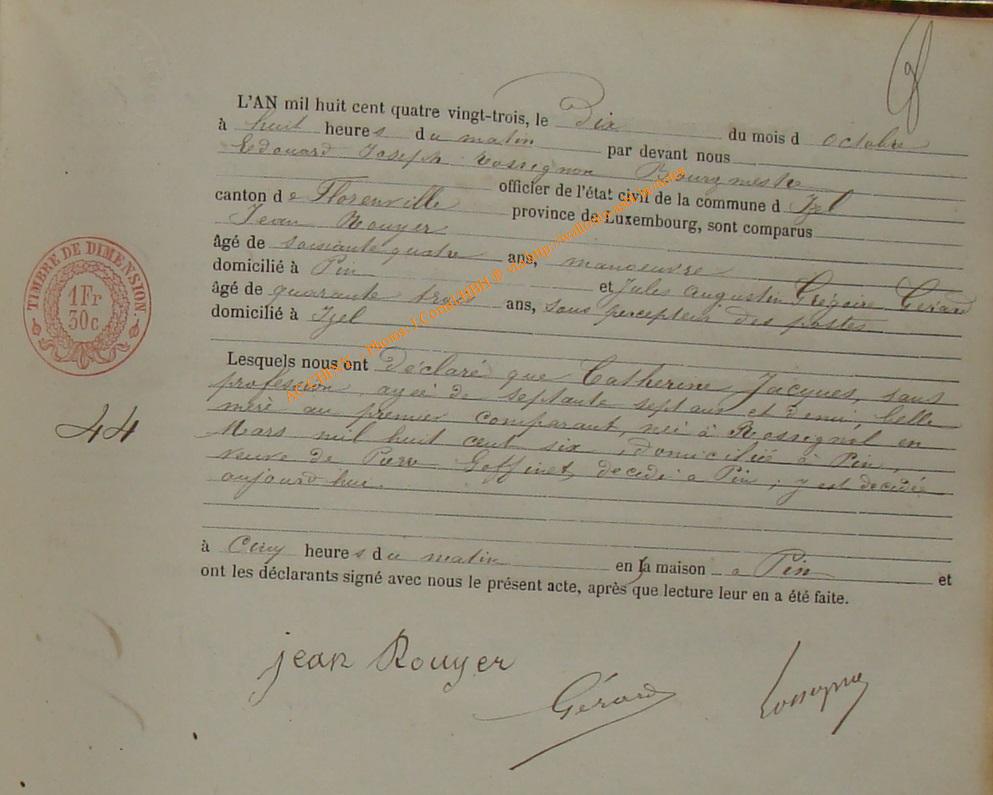 L'AN mil huit cent quatre vingt-trois, le Dix du mois d octobre
à huit heures du matin par devant nous
Edouard Joseph Rossignon Bourgmestre
officier de l'état civil de la commune d Izel
canton de Florenville province de Luxembourg, sont comparus
Jean Rouyer
âgé de soixante quatre ans, manoeuvre
domicilié à Pin et Jules Augustin Grégoire Gérard
âgé de quarante trois ans, sous percepteur des postes
domicilié à Izel
Lesquels nous ont déclaré que Catherine Jacques, sans
profession, agée de septante sept ans et demi, belle
mère au premier comparant, née à Rossignol en
Mars mil huit cent six, domiciliée à Pin,
veuve de Pierre Goffinet, décédé à Pin; y est décédée
aujourd'hui.
à Cinq heures du matin en la maison à Pin et
ont les déclarants signé avec nous le présent acte, après que lecture leur en a été faite.
jean Rouyer
Gérard
Rossignon
TIMBRE DE DIMENSION.
1 Fr
30c
44